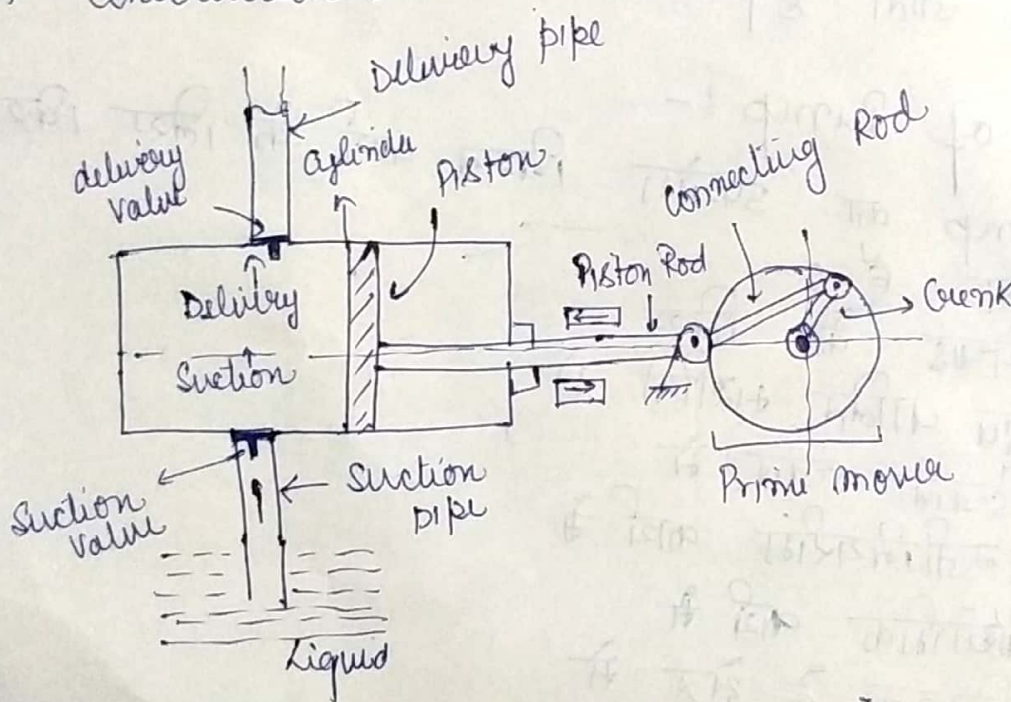 Delivery pipe
delivery
value
Cylinder
Piston
Connecting Rod
Piston Rod
Crenk
Delivery
Suction
Prime mover
Suction
value
Suction
pipe
Liquid